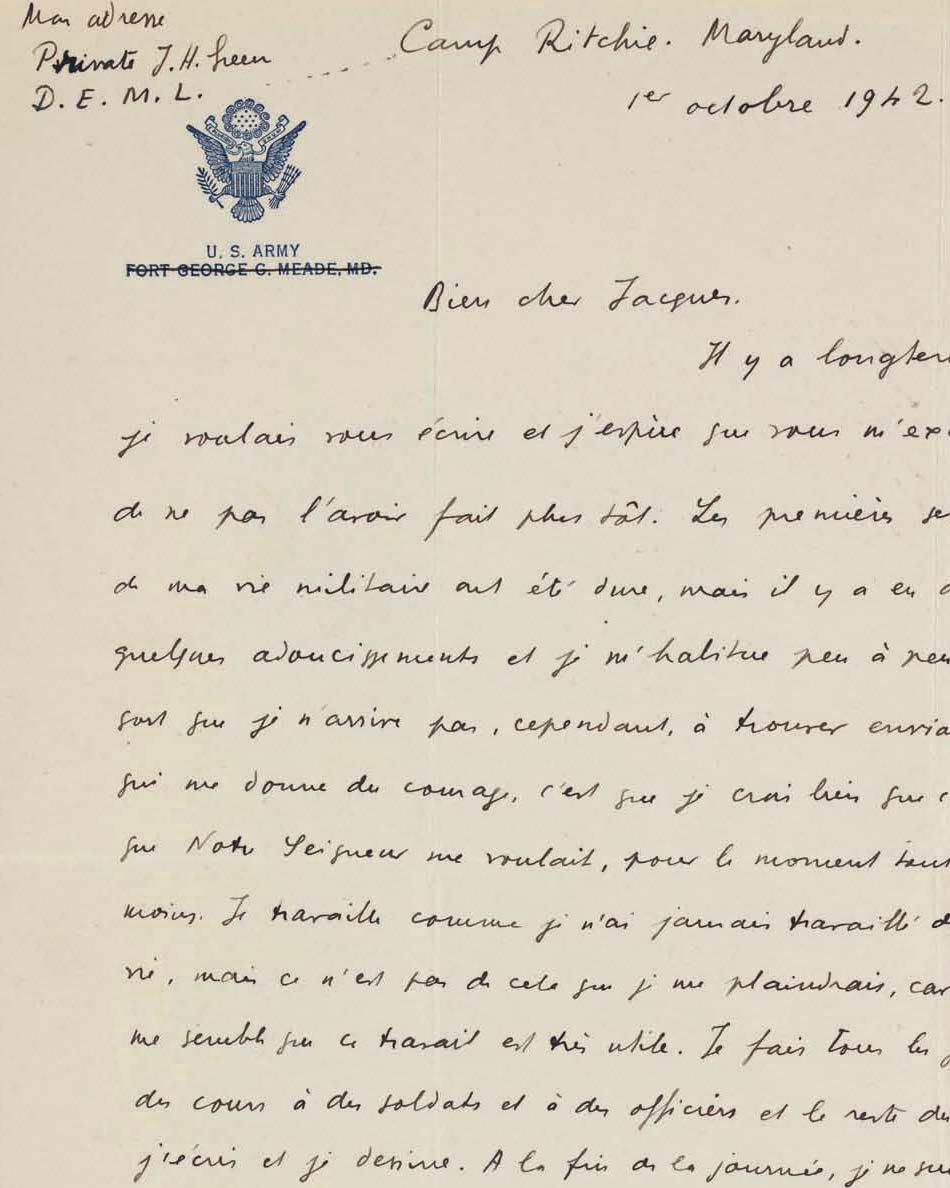 Mon adresse
Private J. H. Green
D. E. M. L.
Camp Ritchie. Maryland.
1er octobre 1942.
U. S. ARMY
FORT GEORGE G. MEADE, MD.
Bien cher Jacques.
Il y a longtem
je voulais vous écrire et j'espère que vous m'exc
de ne pas l'avoir fait plus tôt. Les premières se
de ma vie militaire ont été dure, mais il y a eu d
quelques adoucissements et je m'habitue peu à peu
sort que je n'arrive pas, cependant, à trouver envia
qui me donne du courage, c'est que je crois bien que c
que Notre Seigneur me voulait, pour le moment tout
moins. Je travaille comme je n'ai jamais travaillé d
vie, mais ce n'est pas de cela que je me plaindrais, car
me semble que ce travail est très utile. Je fais tous les j
des cours à des soldats et à des officiers et le reste du
j'écris et je dessine. A la fin de la journée, je ne sui